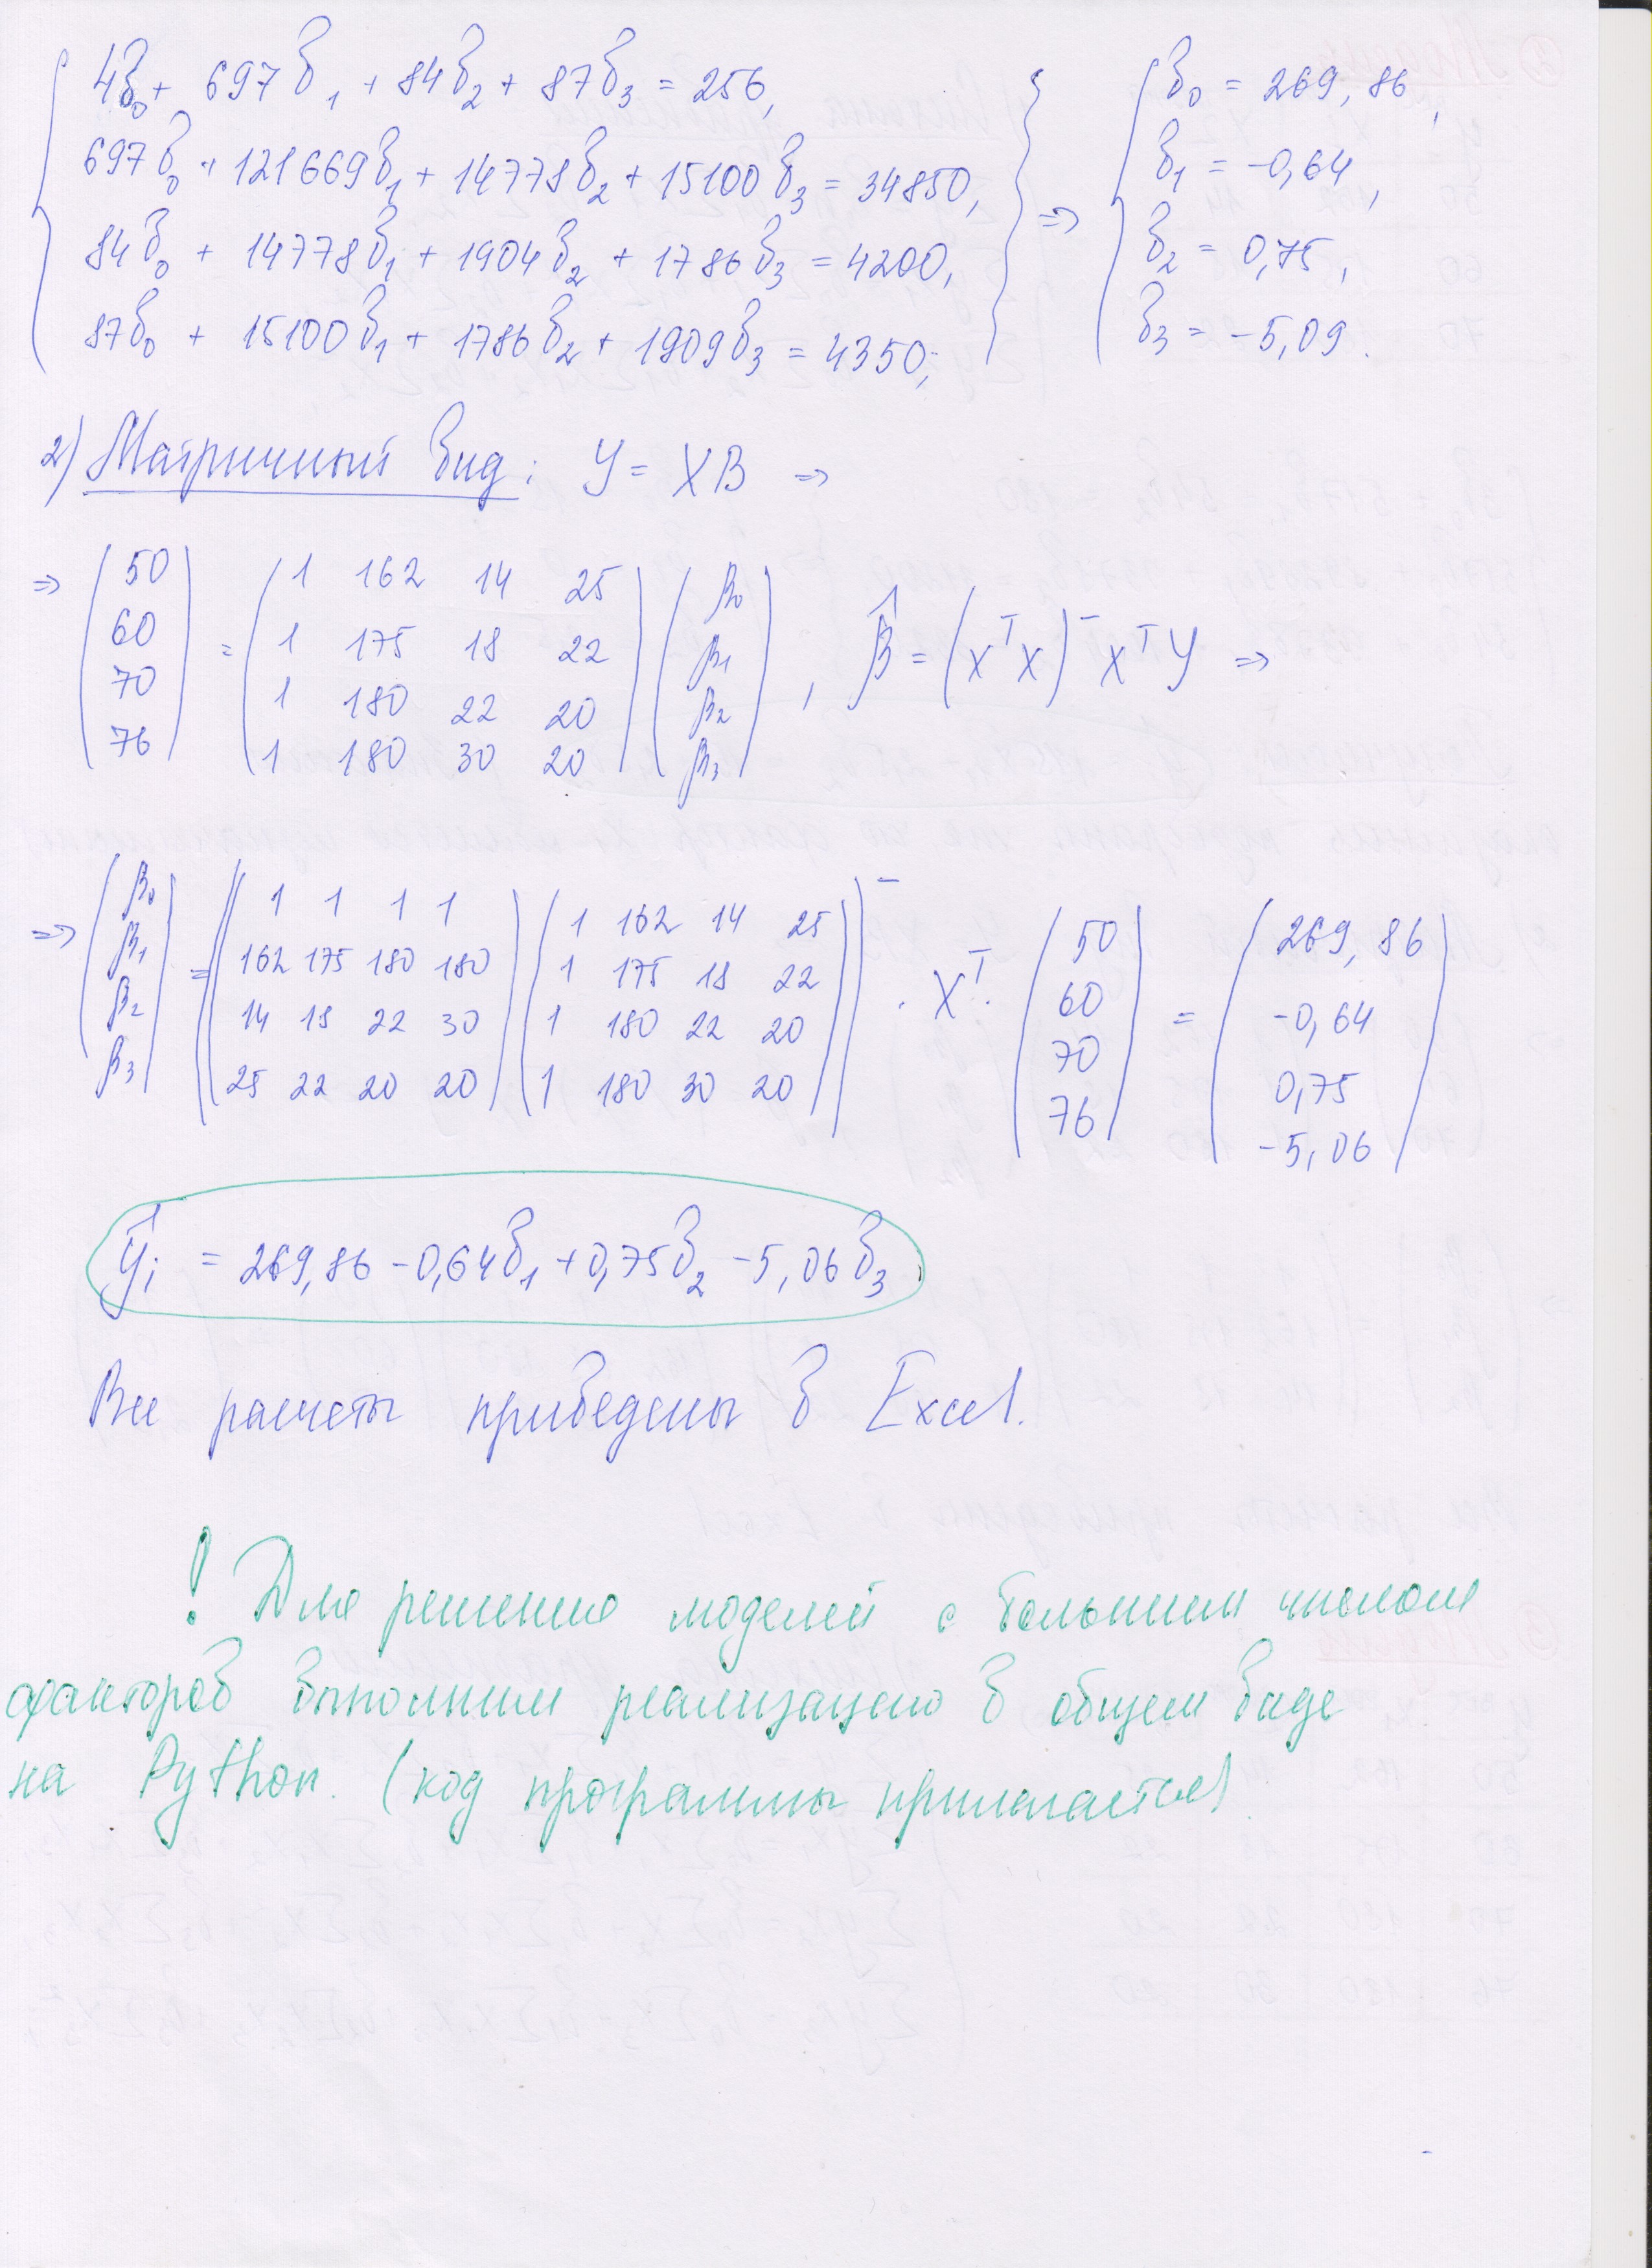 4b₀ + 697b₁ + 84b₂ + 87b₃ = 256,
697b₀ + 121669b₁ + 14778b₂ + 15100b₃ = 34850,
84b₀ + 14778b₁ + 1904b₂ + 1786b₃ = 4200,
87b₀ + 15100b₁ + 1786b₂ + 1909b₃ = 4350;
⇒
b₀ = 269,86,
b₁ = -0,64,
b₂ = 0,75,
b₃ = -5,09.
2) Матричный вид: Y = XB ⇒
⇒ (50 60 70 76) = (1 162 14 25
1 175 18 22
1 180 22 20
1 180 30 20) (β₀ β₁ β₂ β₃), B̂ = (XᵀX)⁻ XᵀY ⇒
⇒ (β₀ β₁ β₂ β₃) = ((1 1 1 1
162 175 180 180
14 18 22 30
25 22 20 20) (1 162 14 25
1 175 18 22
1 180 22 20
1 180 30 20))⁻ · Xᵀ · (50 60 70 76) = (269,86
-0,64
0,75
-5,06)
ŷᵢ = 269,86 - 0,64b₁ + 0,75b₂ - 5,06b₃
Все расчеты приведены в Excel.
! Для решения моделей с большим числом
факторов выполним реализацию в общем виде
на Python. (код программы прилагается)